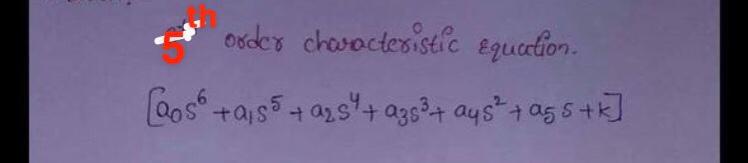 5th order characteristic equation.
[a₀s⁶ + a₁s⁵ + a₂s⁴ + a₃s³ + a₄s² + a₅s + k]